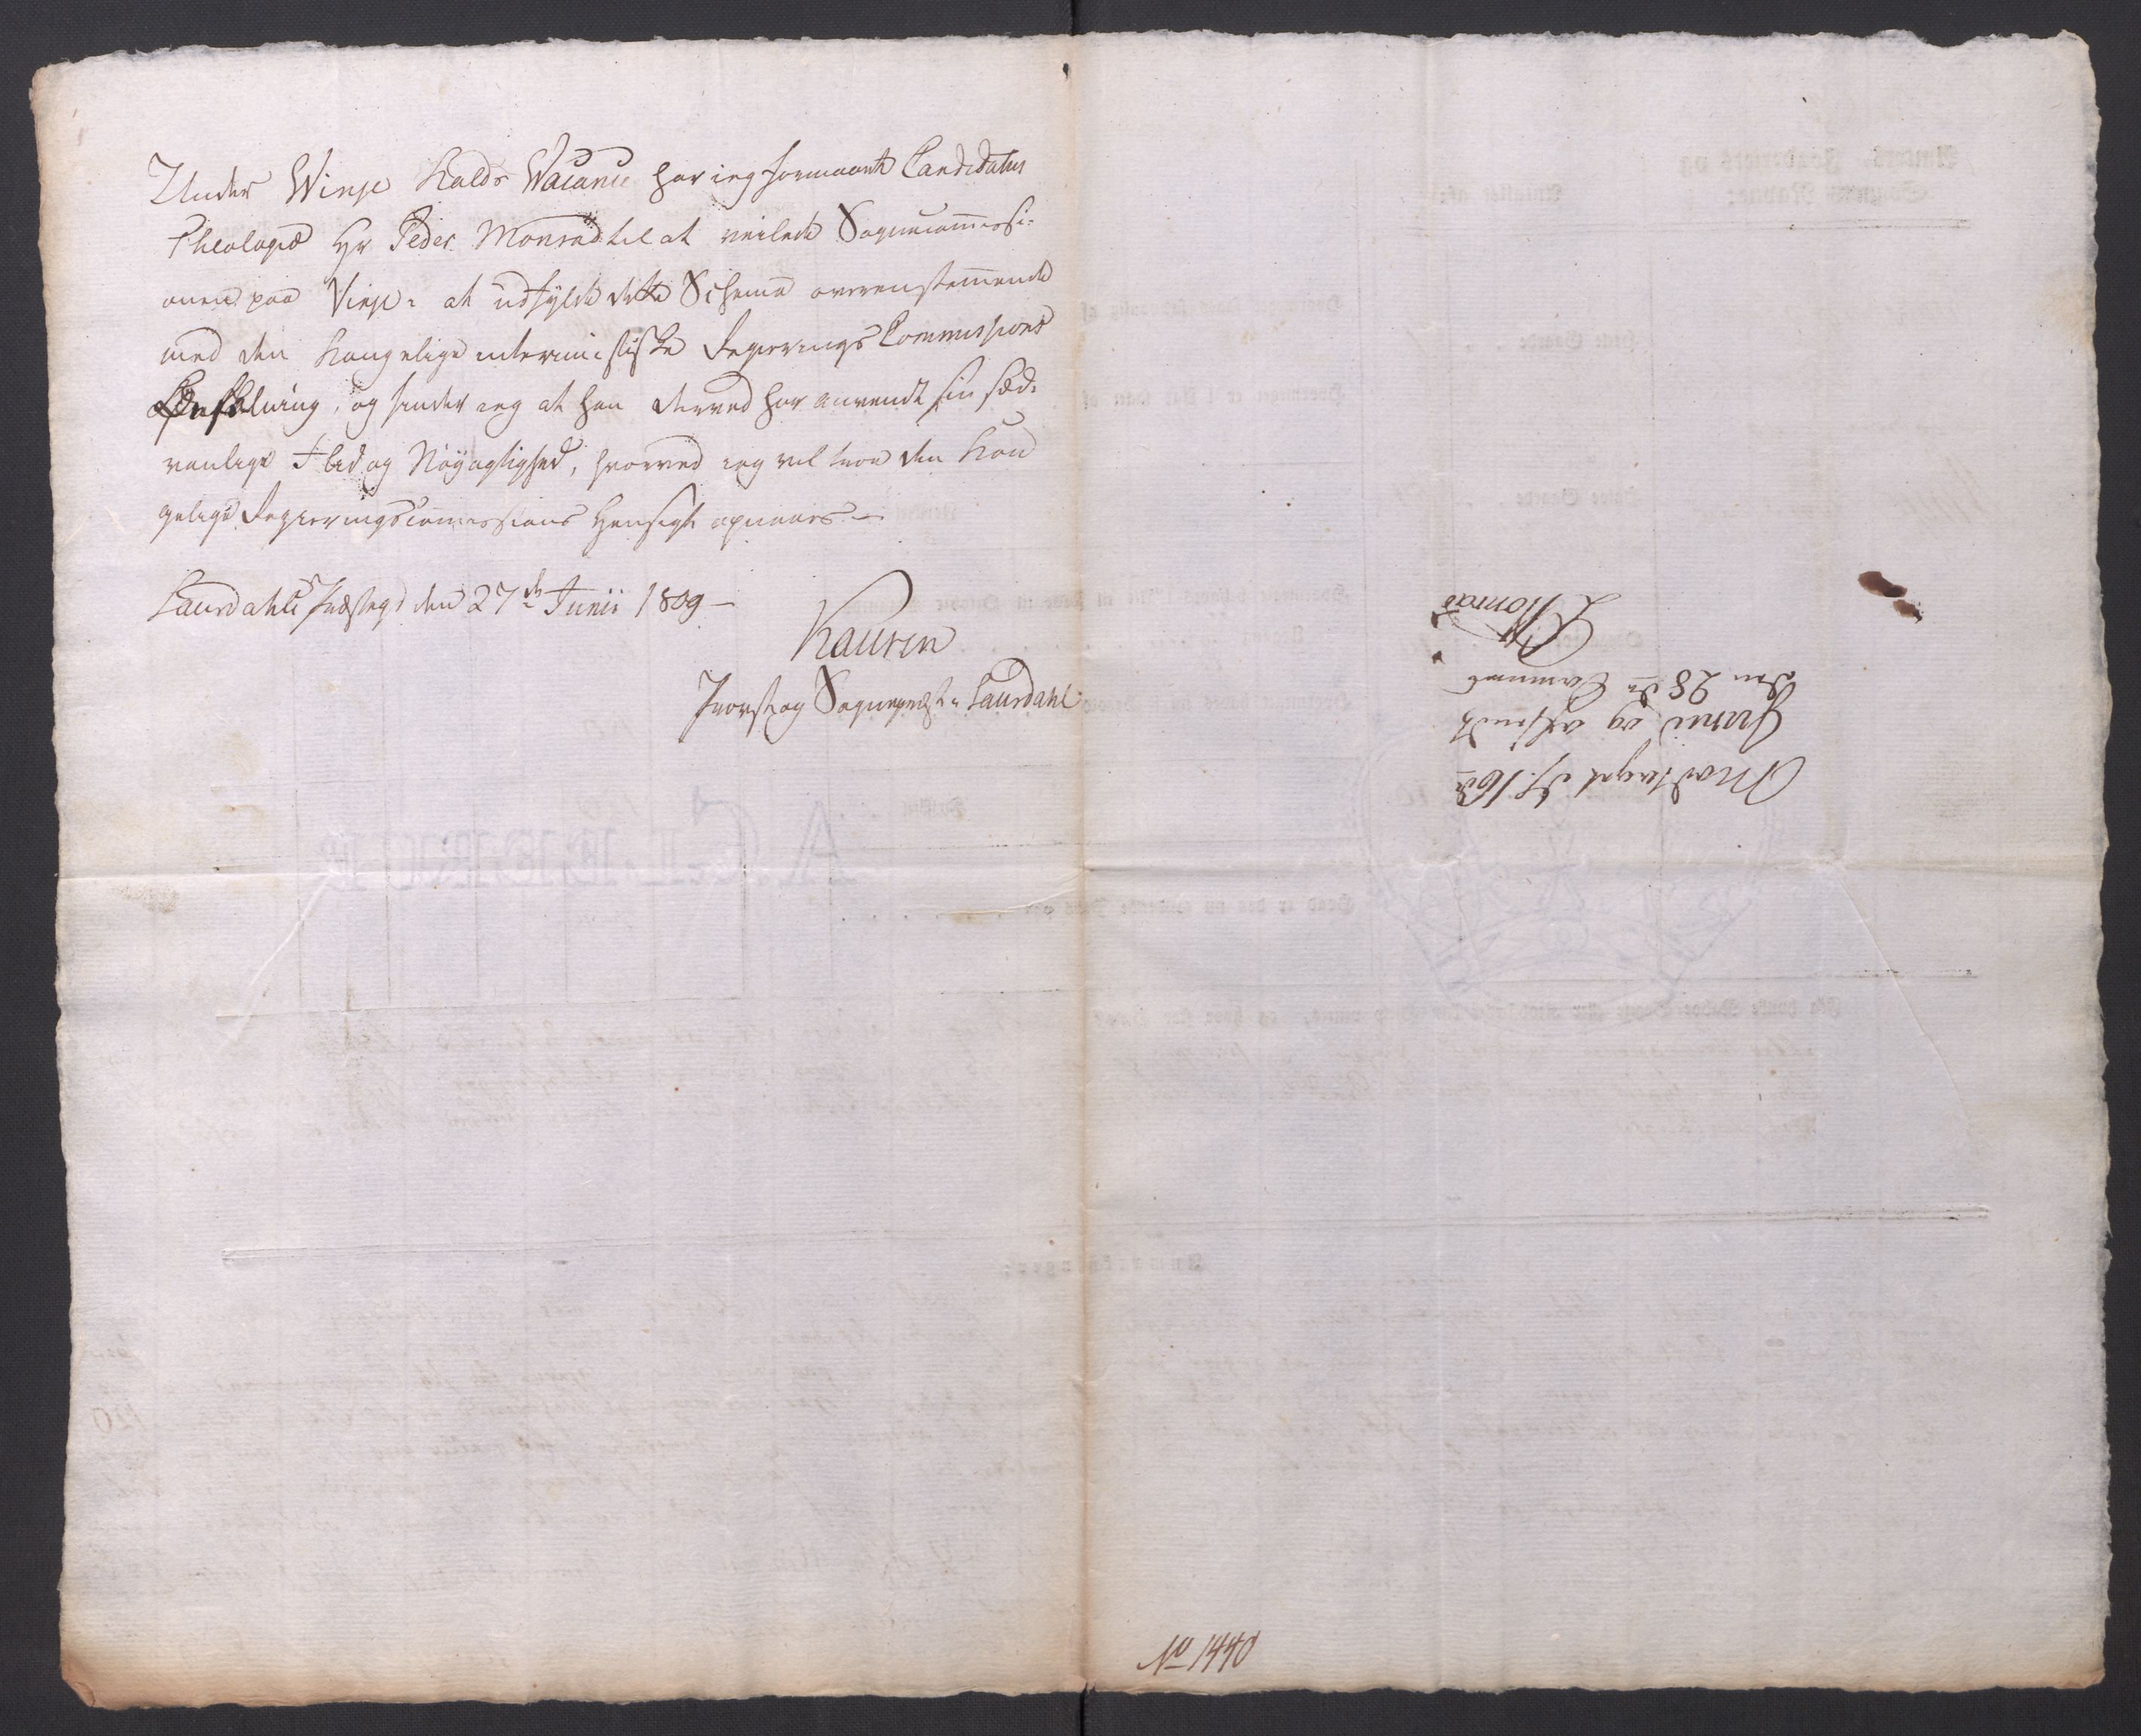 Under Winje Kalds Vacance har ieg formaaet Candidatus
Theologiæ Hr Peder Monrad til at veilede Sognecom̅issi-
onen paa Vinje i at udfylde dette Schema overenstem̅ende
med den Kongelige interimistiske Regierings Commissions
Befalning, og finder ieg at han derved har anvendt sin sæd-
vanlige Flid og Nöyagtighed, hvorved ieg vil troe den Kon
gelige Regieringscom̅issions Hensigt opnaaes —
Laurdahls Præstegd den 27de Junii 1809 —
Kauren
Provst og Sognepræst i Laurdahl
Modtaget d. 16de
Junii og afsendt
den 28de Samme
P Monrad
No 1440